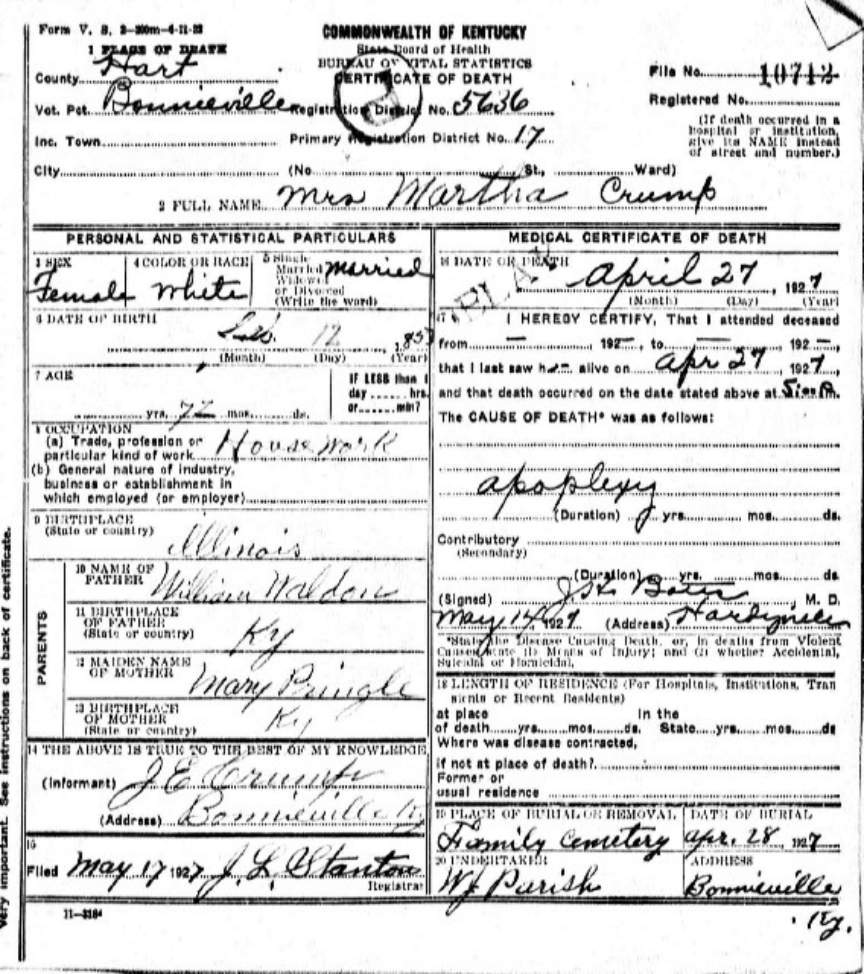 Form V. S. 2-200m-6-11-23
COMMONWEALTH OF KENTUCKY
State Board of Health
BUREAU OF VITAL STATISTICS
CERTIFICATE OF DEATH
1 PLACE OF DEATH
County Hart
File No. 10712
Vot. Pct. Bonnieville Registration District No. 5636
Registered No.
Inc. Town Primary Registration District No. 17
(If death occurred in a hospital or institution, give its NAME instead of street and number.)
City (No St., Ward)
2 FULL NAME Mrs Martha Crump
PERSONAL AND STATISTICAL PARTICULARS
3 SEX Female
4 COLOR OR RACE White
5 Single Married Widowed or Divorced (Write the word) Married
6 DATE OF BIRTH
12, 185
(Month) (Day) (Year)
7 AGE
yrs. 72 mos. ds.
IF LESS than 1 day hrs. or min?
8 OCCUPATION
(a) Trade, profession or particular kind of work House work
(b) General nature of industry, business or establishment in which employed (or employer)
9 BIRTHPLACE
(State or country) Illinois
PARENTS
10 NAME OF FATHER William Waldon
11 BIRTHPLACE OF FATHER (State or country) Ky
12 MAIDEN NAME OF MOTHER Mary Pringle
13 BIRTHPLACE OF MOTHER (State or country) Ky
14 THE ABOVE IS TRUE TO THE BEST OF MY KNOWLEDGE
(Informant) J E Crump
(Address) Bonnieville Ky
15
Filed May 17 1927 J. L. Stanton
Registrar
11-3184
MEDICAL CERTIFICATE OF DEATH
16 DATE OF DEATH
April 27, 1927
(Month) (Day) (Year)
17 I HEREBY CERTIFY, That I attended deceased
from — , 192—, to — , 192—,
that I last saw h alive on Apr 27, 1927,
and that death occurred on the date stated above at m.
The CAUSE OF DEATH* was as follows:
apoplexy
(Duration) yrs. mos. ds.
Contributory
(Secondary)
(Duration) yrs. mos. ds.
(Signed) Bates, M. D.
May 14 1927 (Address) Hardyville
*State the Disease Causing Death, or, in deaths from Violent
Causes, state (1) Means of Injury; and (2) whether Accidental,
Suicidal or Homicidal.
18 LENGTH OF RESIDENCE (For Hospitals, Institutions, Tran
sients or Recent Residents)
at place of death yrs. mos. ds. In the State yrs. mos. ds
Where was disease contracted,
if not at place of death?
Former or
usual residence
19 PLACE OF BURIAL OR REMOVAL Family Cemetery
DATE OF BURIAL Apr. 28, 1927
20 UNDERTAKER W J Parish
ADDRESS Bonnieville Ky.
Very important. See instructions on back of certificate.